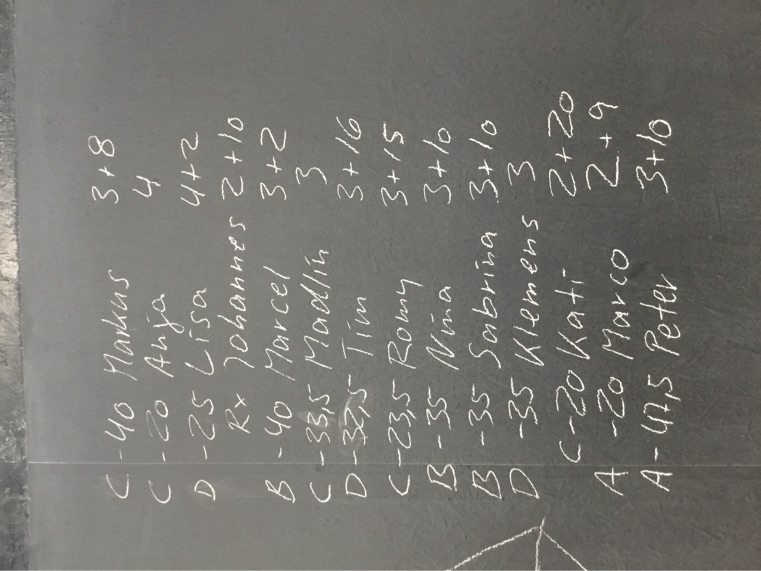 C -40 Markus 3+8
C -20 Anja 4
D -25 Lisa 4+2
Rx Johannes 2+10
B -40 Marcel 3+2
C -33,5 Madlin 3
D -32,5 Tim 3+16
C -23,5 Romy 3+15
B -35 Nina 3+10
B -35 Sabrina 3+10
D -35 Klemens 3
C -20 Kati 2+20
A -20 Marco 2+9
A -47,5 Peter 3+10